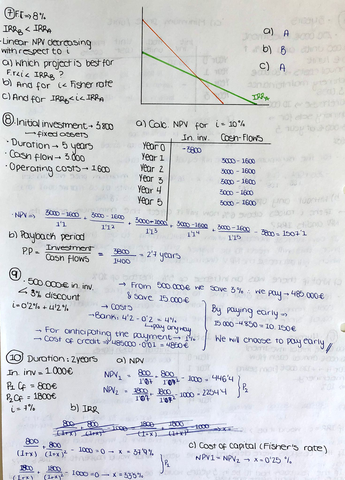 ⑦ F.I ⇒ 8%
IRR_B < IRR_A
· Linear NPV decreasing
with respect to i
a) Which project is best for
F.r < i < IRR_B ?
b) And for i < Fisher rate
c) And for IRR_B < i < IRR_A
IRR_A
a) A
b) B
c) A
⑧ · Initial investment → 3800
→ fixed assets
· Duration → 5 years
· Cash flow → 3000
· Operating costs → 1600
a) Calc NPV for i = 10%
In. inv. Cash-Flows
Year 0 -3800
Year 1 3000 - 1600
Year 2 3000 - 1600
Year 3 3000 - 1600
Year 4 3000 - 1600
Year 5 3000 - 1600
· NPV ⇒ 3000-1600/1'1 + 3000-1600/1'1² + 3000-1600/1'1³ + 3000-1600/1'1⁴ + 3000-1600/1'1⁵ - 3800 = 1507'1
b) Payback period
P.P = Investment/Cash flows = 3800/1400 = 2'7 years
⑨ · 500.000€ in. inv.
3% discount
i = 0'2% + 4'2%
→ From 500.000€ we save 3% : we pay → 485.000€
& save 15.000€
→ Costs
- Bank: 4'2 - 0'2 = 4%
↳ pay anyway
→ For anticipating the payment → 1%
→ Cost of credit → 485000 · 0'01 = 4850€
By paying early ⇒
15.000 - 4850 = 10.150€
We will choose to pay early
⑩ Duration: 2 years
In. inv = 1.000€
P₁ CF = 800€
P₂ CF = 1800€
i = 7%
a) NPV
NPV₁ = 800/1'07 + 800/1'07² - 1000 = 446'4
NPV₂ = 1800/1'07 + 1800/1'07² - 1000 = 2254'4
b) IRR
800/(1+x) + 800/(1+x)² - 1000 = 0 → x =
1800/(1+x) + 1800/(1+x)² - 1000 = 0 → x =
c) Cost of capital (Fisher's rate)
NPV1 = NPV₂ → x = 0'25 %